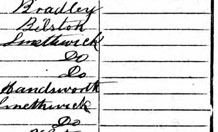 Bradley
Bilston
Smethwick
Do
Do
Handsworth
Smethwick
Do